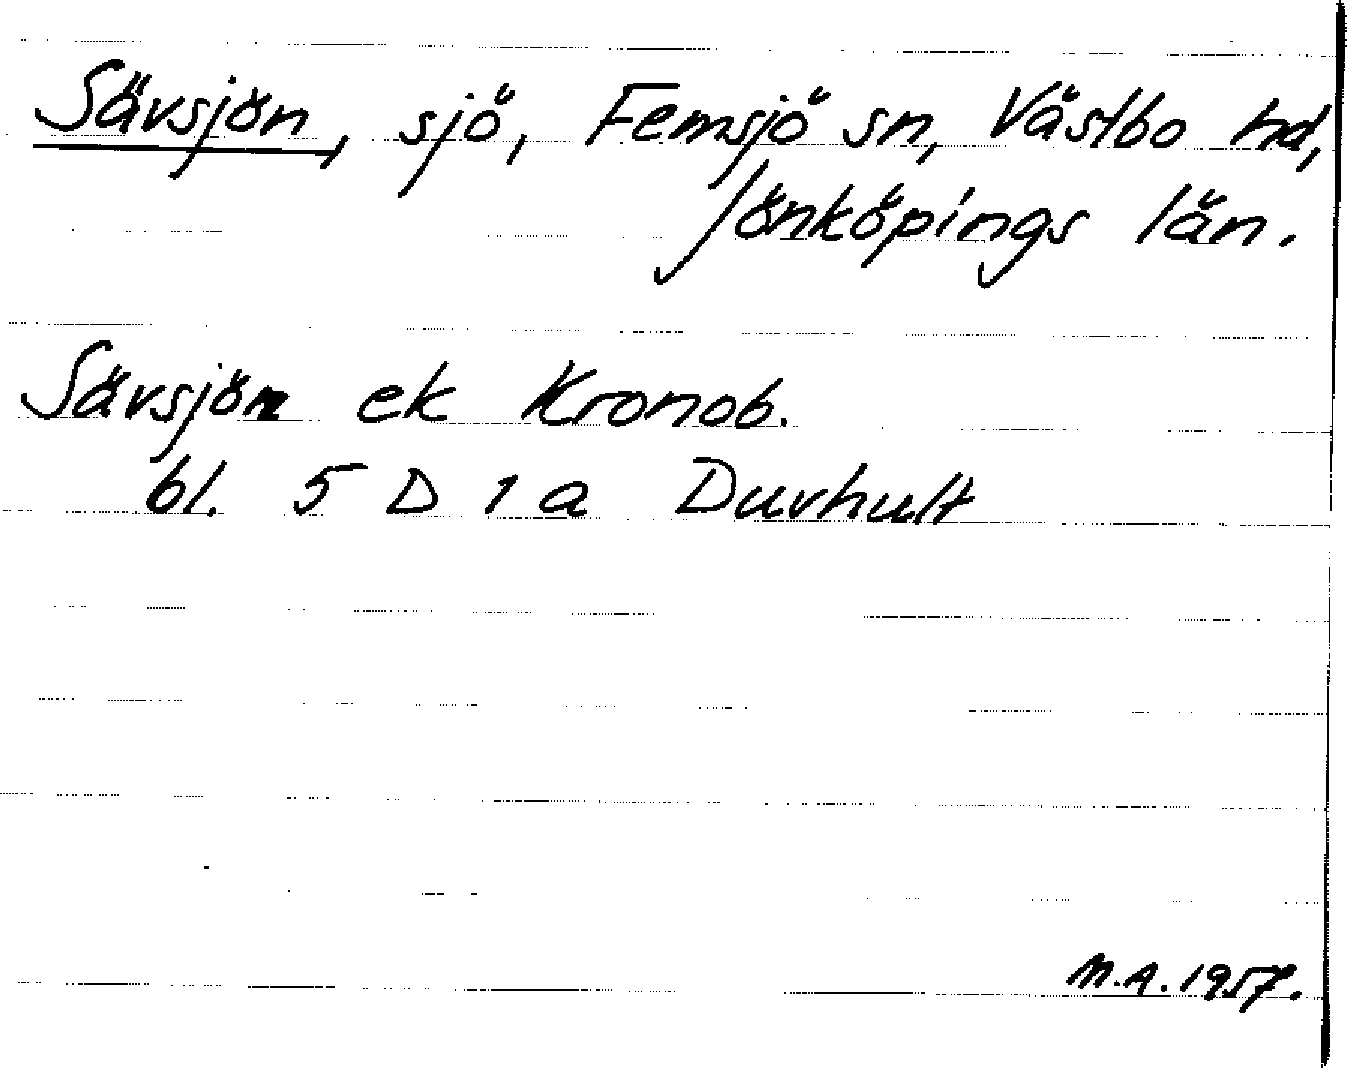 Sävsjön, sjö, Femsjö sn, Västbo hd,
Jönköpings län.
Sävsjön ek Kronob.
bl. 5 D 1 a Duvhult
M.A. 1957.